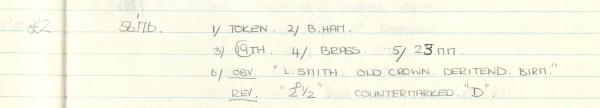 £2 56'76. 1/ TOKEN. 2/ B.HAM.
3/ 19TH. 4/. BRASS. 5/ 23 MM.
6/ OBV. "L. SMITH OLD CROWN. DERITEND. BIRM."
REV. "2½" COUNTERMARKED. "D".